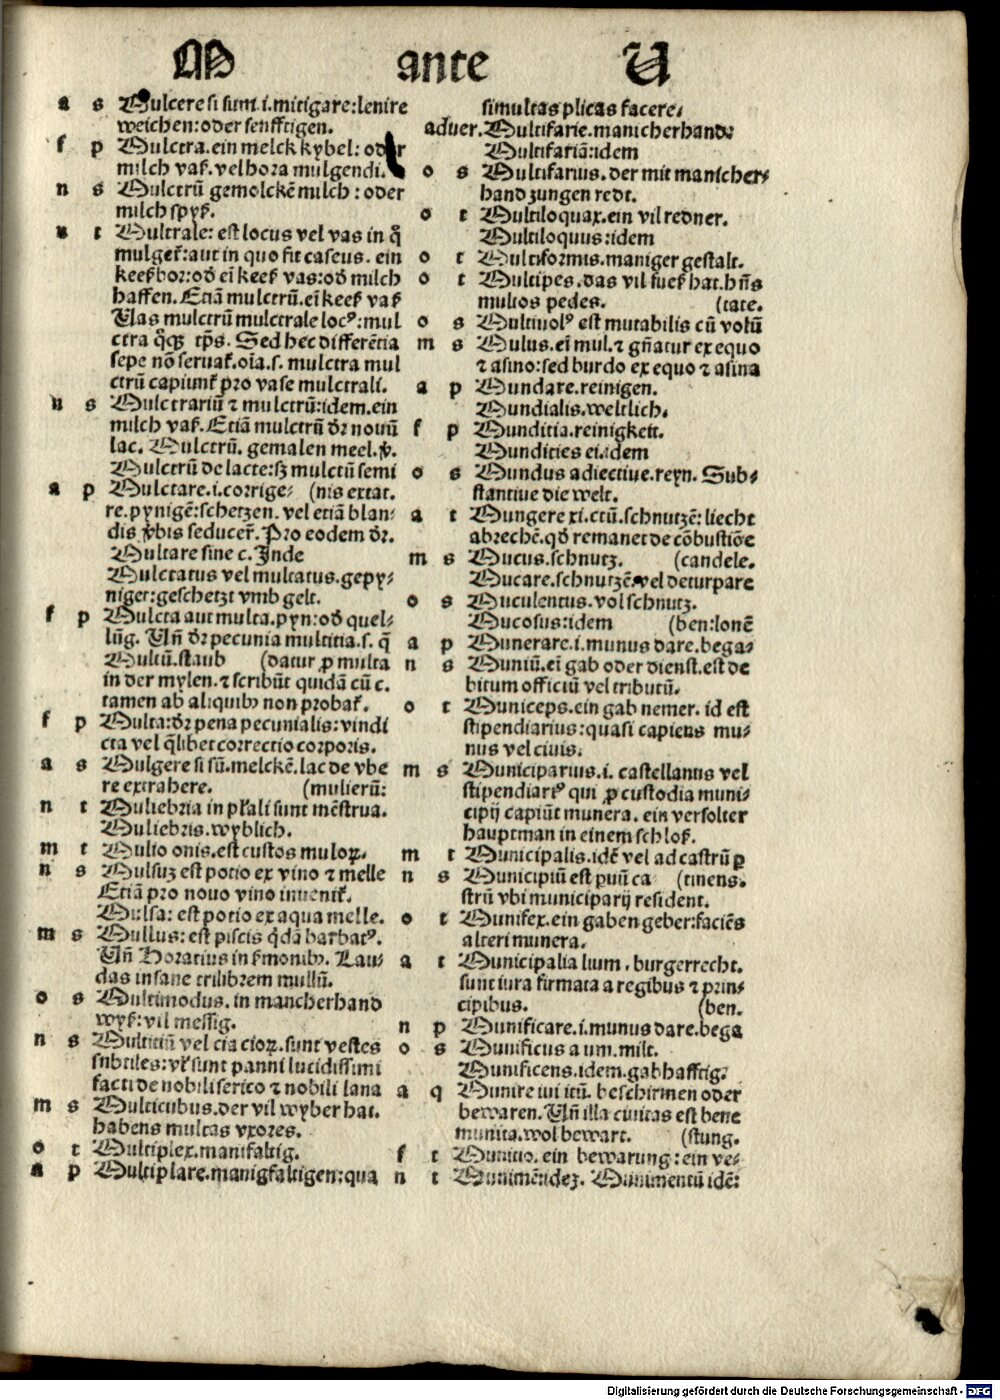 M ante U
a s Mulcere si sum .i. mitigare: lenire
weichen: oder senfftigen.
f p Mulctra. ein melck kybel: oder
milch vaß. vel hora mulgendi.
n s Mulctrū gemolckē milch: oder
milch spyß.
n t Multrale: est locus vel vas in q̄
mulget̄: aut in quo fit caseus. ein
keeßbor: od̄ eī keeß vas: od̄ milch
haffen. Etiā mulctrū. eī keeß vaß
Vas mulctrū mulctrale locꝰ: mul
ctra q̊qꝫ tp̄s. Sed hec differētia
sepe nō seruat̄. oīa .s. mulctra mul
ctrū capiunt̄ pro vase mulctrali.
n s Mulctrariū ⁊ mulctrū: idem. ein
milch vaß. Etiā mulctrū dr̄ nouū
lac. Mulctrū. gemalen meel. v̄.
Mulctrū de lacte: sꝫ mulctū semi
a p Mulctare .i. corrige⸗ (nis extat.
re. pynigē: schetzen. vel etiā blan⸗
dis v̄bis seducer̄. Pro eodem dr̄.
Multare sine c. Inde
Mulctatus vel multatus. gepy⸗
niget: geschetzt vmb gelt.
f p Mulcta aut multa. pyn: od̄ quel⸗
lūg. Uñ dr̄ pecunia multitia .s. q̄
Multū. staub (datur ꝓ multa
in der mylen. ⁊ scribūt quidā cū c.
tamen ab aliquibꝰ non probat̄.
f p Multa: dr̄ pena pecunialis: vindi
cta vel q̄libet correctio corporis.
a s Mulgere si sū. melckē. lac de vbe
re extrahere. (mulierū:
n t Muliebria in pl̄ali sunt mēstrua.
Muliebris. wyblich.
m t Mulio onis. est custos muloꝝ.
n s Mulsuꝫ est potio ex vino ⁊ melle
Etiā pro nouo vino inuenit̄.
Mulsa: est potio ex aqua melle.
m s Mullus: est piscis q̇dā barbatꝰ.
Uñ Horatius in s̄monibꝰ. Lau⸗
das insane trilibrem mullū.
o s Multimodus. in mancherhand
wyß: vil messig.
n s Multitiū vel cia cioꝝ. sunt vestes
subtiles: vl̄ sunt panni lucidissimi
facti de nobili serico ⁊ nobili lana
m s Multicubus. der vil wyber hat.
habens multas vxores.
o t Multiplex. manifaltig.
a p Multiplare. manigfaltigen: qua
simultas plicas facere.
aduer. Multifarie. manicherhand:
Multifariā: idem
o s Multifarius. der mit manicher⸗
hand zungen redt.
o t Multiloquax. ein vil redner.
Multiloquus: idem
o t Multiformis. maniger gestalt.
o t Multipes. das vil fueß hat. hñs
multos pedes. (tate.
o s Multiuolꝰ est mutabilis cū volū
m s Mulus. eī mul. ⁊ gñatur ex equo
⁊ asino: sed burdo ex equo ⁊ asina
a p Mundare. reinigen.
Mundialis. weltlich.
f p Munditia. reinigkeit.
Mundities ei. idem
o s Mundus adiectiue. reyn. Sub⸗
stantiue die welt.
a t Mungere xi. ctū. schnutzē: liecht
abrechē. qd̄ remanet de cōbustiōe
m s Mucus. schnutz. (candele.
Mucare. schnutzē vel deturpare
o s Muculentus. vol schnutz.
Mucosus: idem (ben: lonē
a p Munerare .i. munus dare. bega⸗
n s Muniū. eī gab oder dienst. est de
bitum officiū vel tributū.
o t Municeps. ein gab nemer. id est
stipendiarius: quasi capiens mu⸗
nus vel ciuis.
m s Municiparius .i. castellanus vel
stipendiariꝰ qui ꝓ custodia muni⸗
cipij capiūt munera. ein versolter
hauptman in einem schloß.
m t Municipalis. idē vel ad castrū ꝑ
n s Municipiū est ꝑuū ca (tinens.
strū vbi municiparij resident.
o t Munifex. ein gaben geber: faciēs
alteri munera.
a t Municipalia lium. burgerrecht.
sunt iura firmata a regibus ⁊ prin⸗
cipibus. (ben.
n p Munificare .i. munus dare. bega
o s Munificus a um. milt.
Munificens. idem. gabhafftig.
a q Munire iui itū. beschirmen oder
bewaren. Uñ illa ciuitas est bene
munita. wol bewart. (stung.
f t Munitio. ein bewarung: ein ve⸗
n t Munimē: ideꝫ. Munimentū idē:
Digitalisierung gefördert durch die Deutsche Forschungsgemeinschaft - DFG